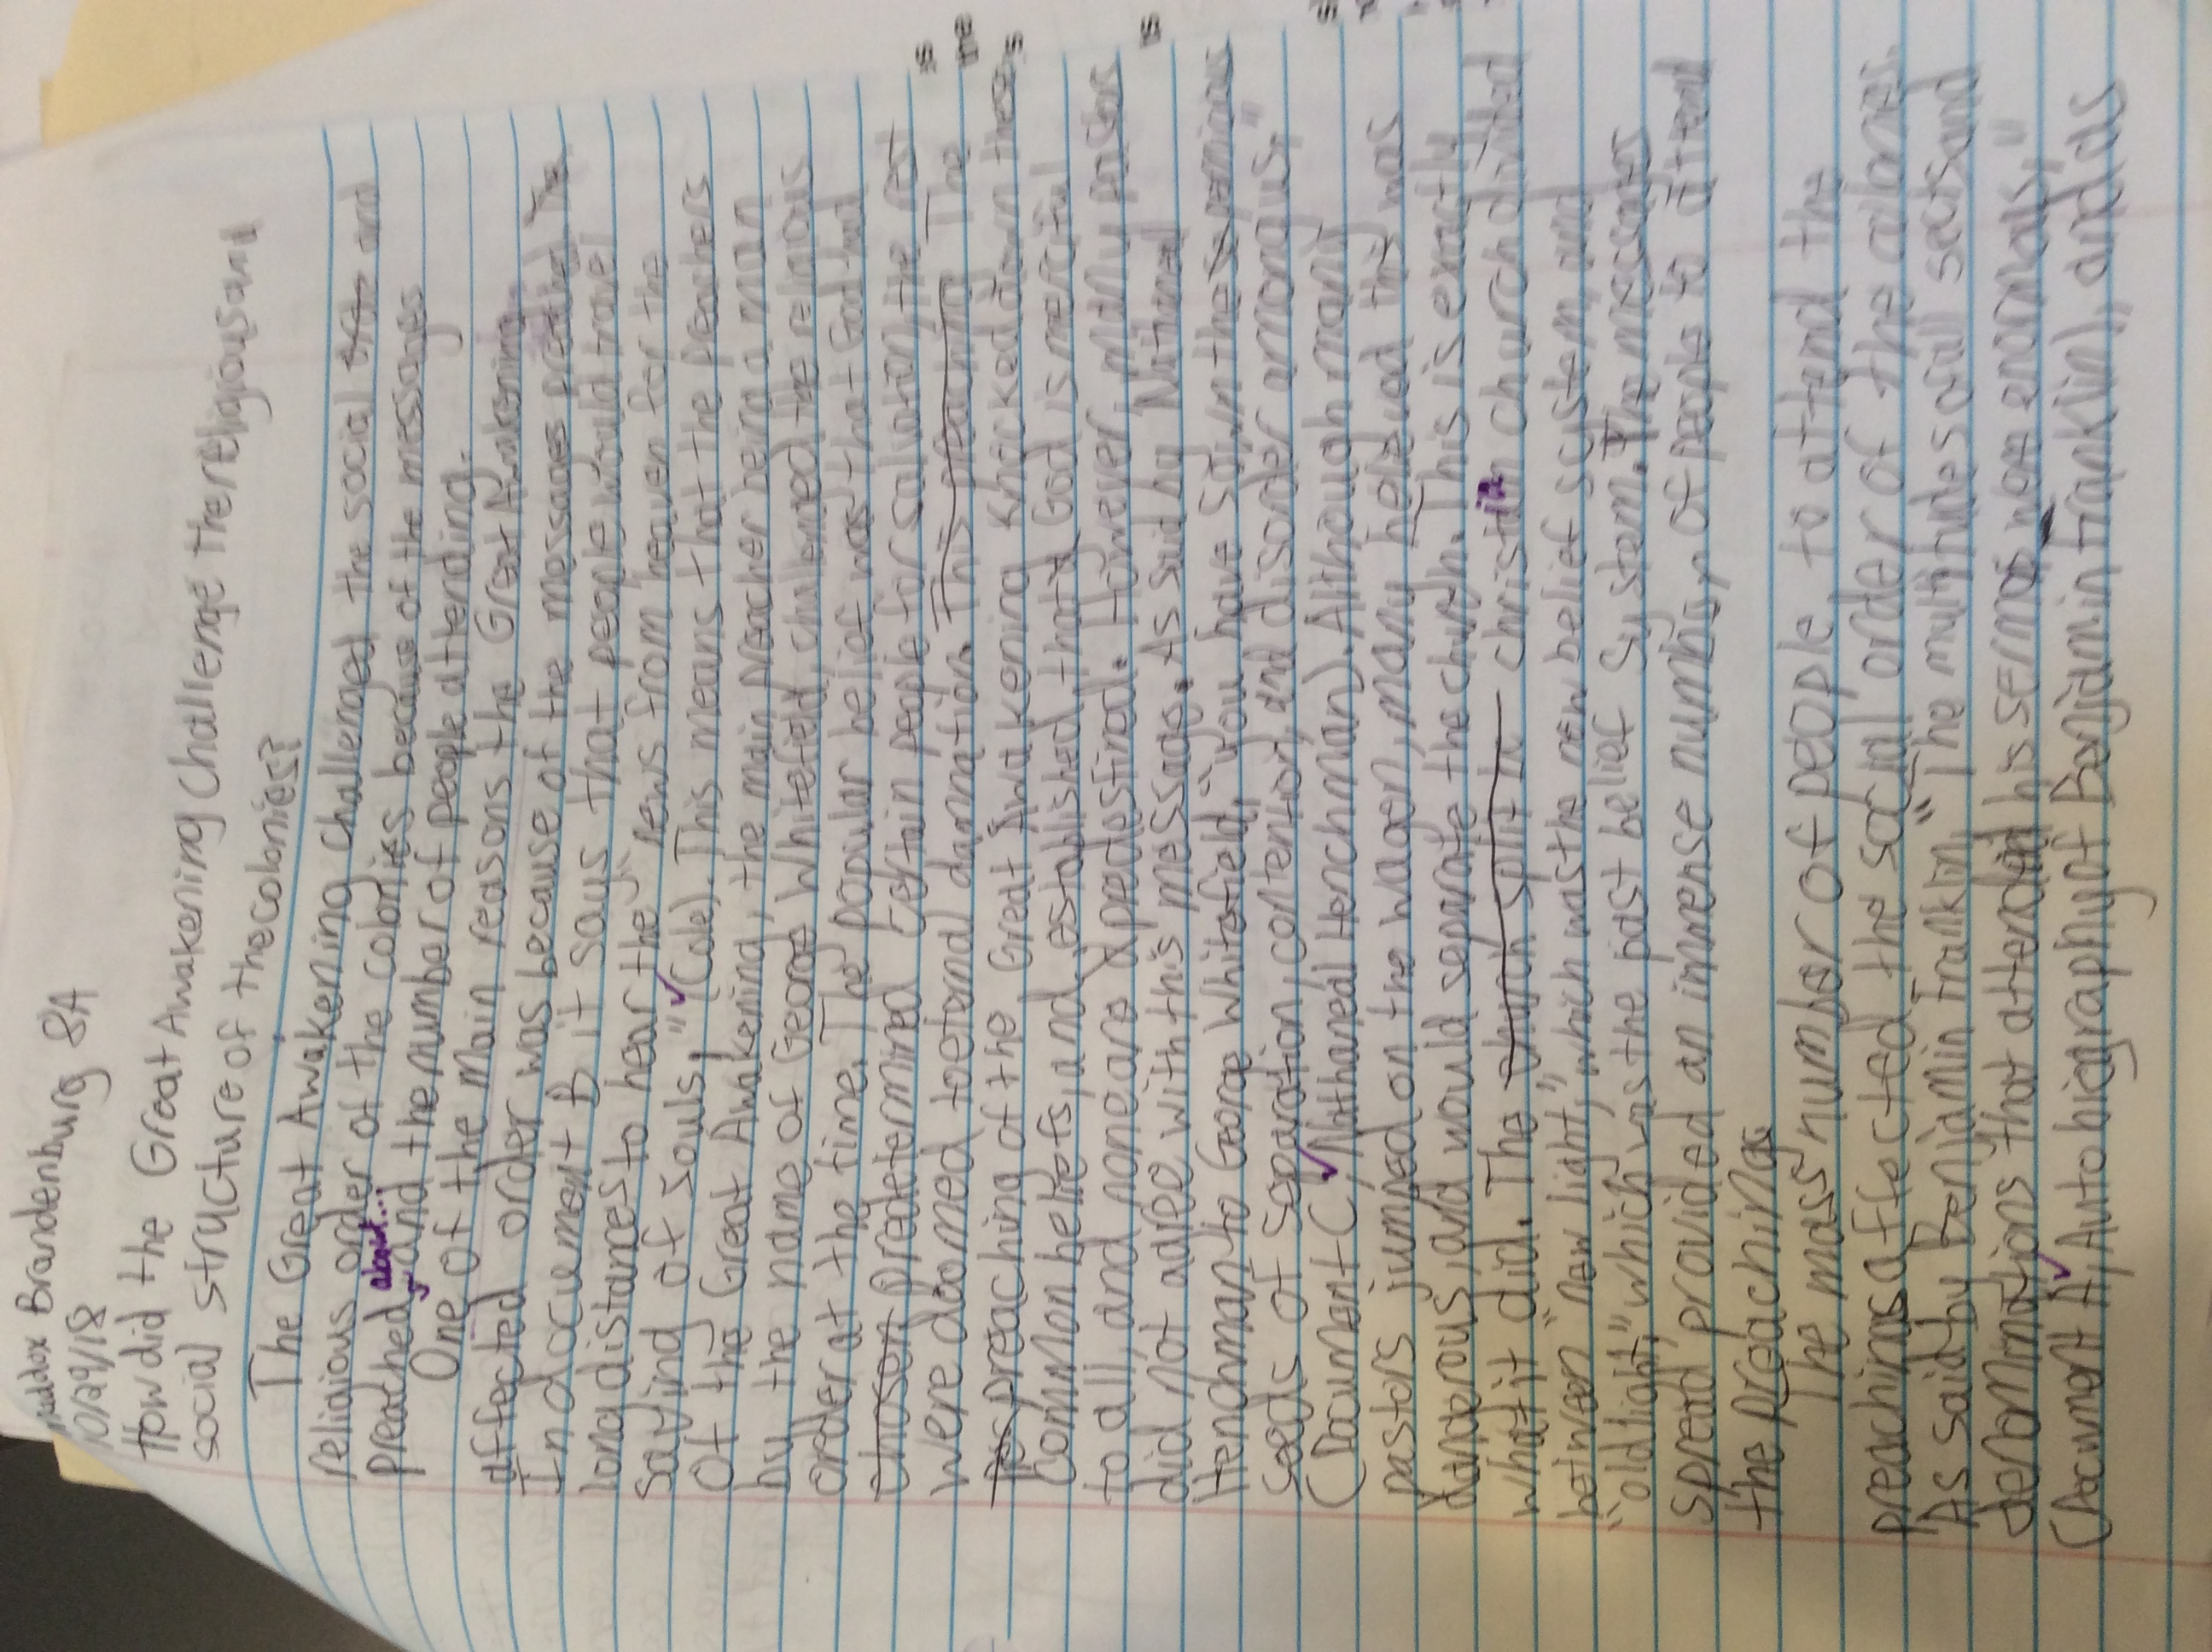 Maddox Brandenburg 8A
10/29/18
How did the Great Awakening Challenge the religious and
social structure of the colonies?
The Great Awakening challenged the social and
religious order of the colonies because of the messages
about...
preached, and the number of people attending.
One of the main reasons the Great Awakening
affected order was because of the messages preached. The
In document B it says that people would travel
long distances to hear the "news from heaven for the
saving of souls," (Cole). This means that the preachers
of the Great Awakening, the main preacher being a man
by the name of George Whitefield, challenged the religious
order at the time. The popular belief was that God had
chosen predetermined certain people for salvation, the rest
were doomed to eternal damnation. This preaching The
preaching of the Great Awakening knocked down these
common beliefs, and established that God is merciful
to all, and none are predestined. However, many pastors
did not agree with this message. As said by
Henchman to George Whitefield, "you have sown these pernicious
seeds of separation, contention, and disorder among us,"
(Document C, Nathaneal Henchman). Although many
pastors jumped on the wagon, many believed this was
dangerous, and would separate the church. This is exactly
what it did. The church split in christian church divided
between "new light," which was the new belief system, and
"old light," which was the past belief system. The messages
spread provided an immense number of people to attend
the preachings
The mass number of people, to attend the
preachings affected the social order of the colonies.
As said by Benjamin Franklin, "The multitudes of all sects and
denominations that attended his sermons were enormous,"
(Document A, Autobiography of Benjamin Franklin), and as